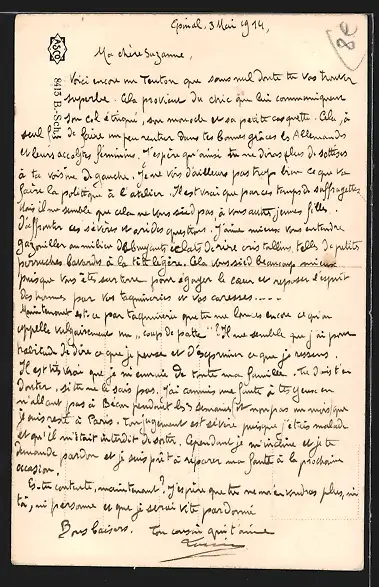 Epinal, 3 Mai 1914,
8e
ASCO
8415 B.-S.
Ma chère Suzanne,
Voici encore un Teuton que sans nul doute tu vas trouver
superbe. Cela provient du chic que lui communiquent
son col étriqué, son monocle et sa petite casquette. Cela, à
seul fin de faire un peu rentrer dans tes bonnes grâces les Allemands
et leurs accolytes féminins. J'espère qu'ainsi tu ne diras plus de sottises
à ta voisine de gauche. Je ne vois d'ailleurs pas trop bien ce que va
faire la politique à l'atelier. Il est vrai que par ces temps de suffragettes
mais il me semble que cela ne vous sied pas à vous autres, jeunes filles
D'affronter ces sévères et arides questions. J'aime mieux vous entendre
gazouiller au milieu de bruyants éclats de rire cristallins, telles de petites
perruches bavardes à la tête légère. Cela vous sied beaucoup mieux
puisque vous êtes sur terre pour égayer le cœur et reposer l'esprit
des hommes par vos taquineries et vos caresses.....
Maintenant est-ce par taquinerie que tu me lances encore ce qu'on
appelle vulgairement un "coup de patte"? Il me semble que j'ai pour
habitude de dire ce que je pense et d'exprimer ce que je ressens.
Il est très vrai que je m'ennuie de toute ma famille. Tu dois t'en
douter, si tu ne le sais pas. J'ai commis une faute à tes yeux en
n'allant pas à Bécon pendant les 3 semaines (et non pas un mois) que
je suis resté à Paris. Ton jugement est sévère puisque j'étais malade
et qu'il m'était interdit de sortir. Cependant je m'incline et je te
demande pardon et je suis prêt à réparer ma faute à la prochaine
occasion.
Es-tu contente, maintenant? J'espère que tu ne m'en voudras plus, ni
toi, ni personne et que je serai vite pardonné
Bons baisers. Ton cousin qui t'aime